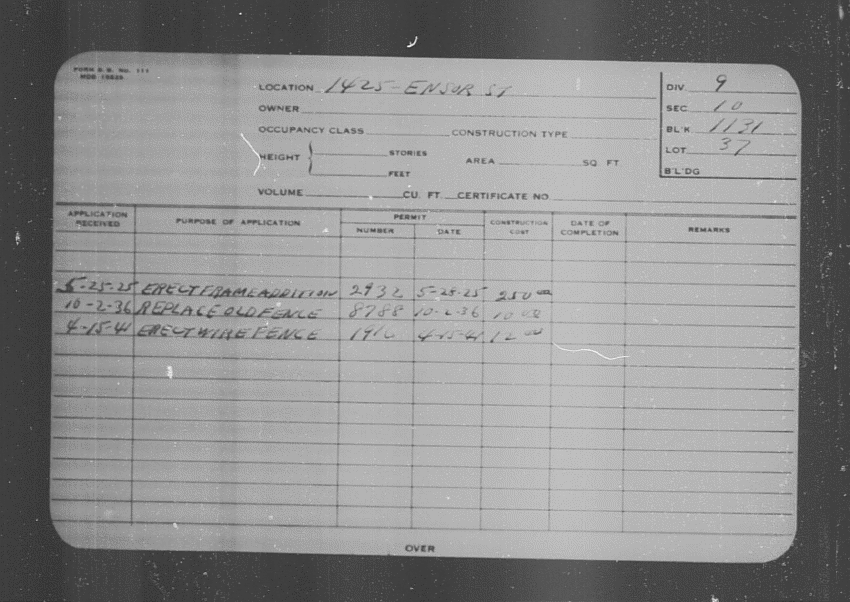 FORM B.B. No. 111
LOCATION 1425-ENSOR ST
DIV. 9
OWNER
SEC 10
OCCUPANCY CLASS CONSTRUCTION TYPE
BL'K 1131
HEIGHT { STORIES AREA SQ FT
LOT 37
FEET
B'L'DG
VOLUME CU. FT. CERTIFICATE NO
APPLICATION RECEIVED PURPOSE OF APPLICATION PERMIT NUMBER DATE CONSTRUCTION COST DATE OF COMPLETION REMARKS
5-25-25 ERECT FRAME ADDITION 2932 5-28-25 250 00
10-2-36 REPLACE OLD FENCE 8788 10-2-36 10 00
4-15-41 ERECT WIRE FENCE 4-15-41 12 00
OVER